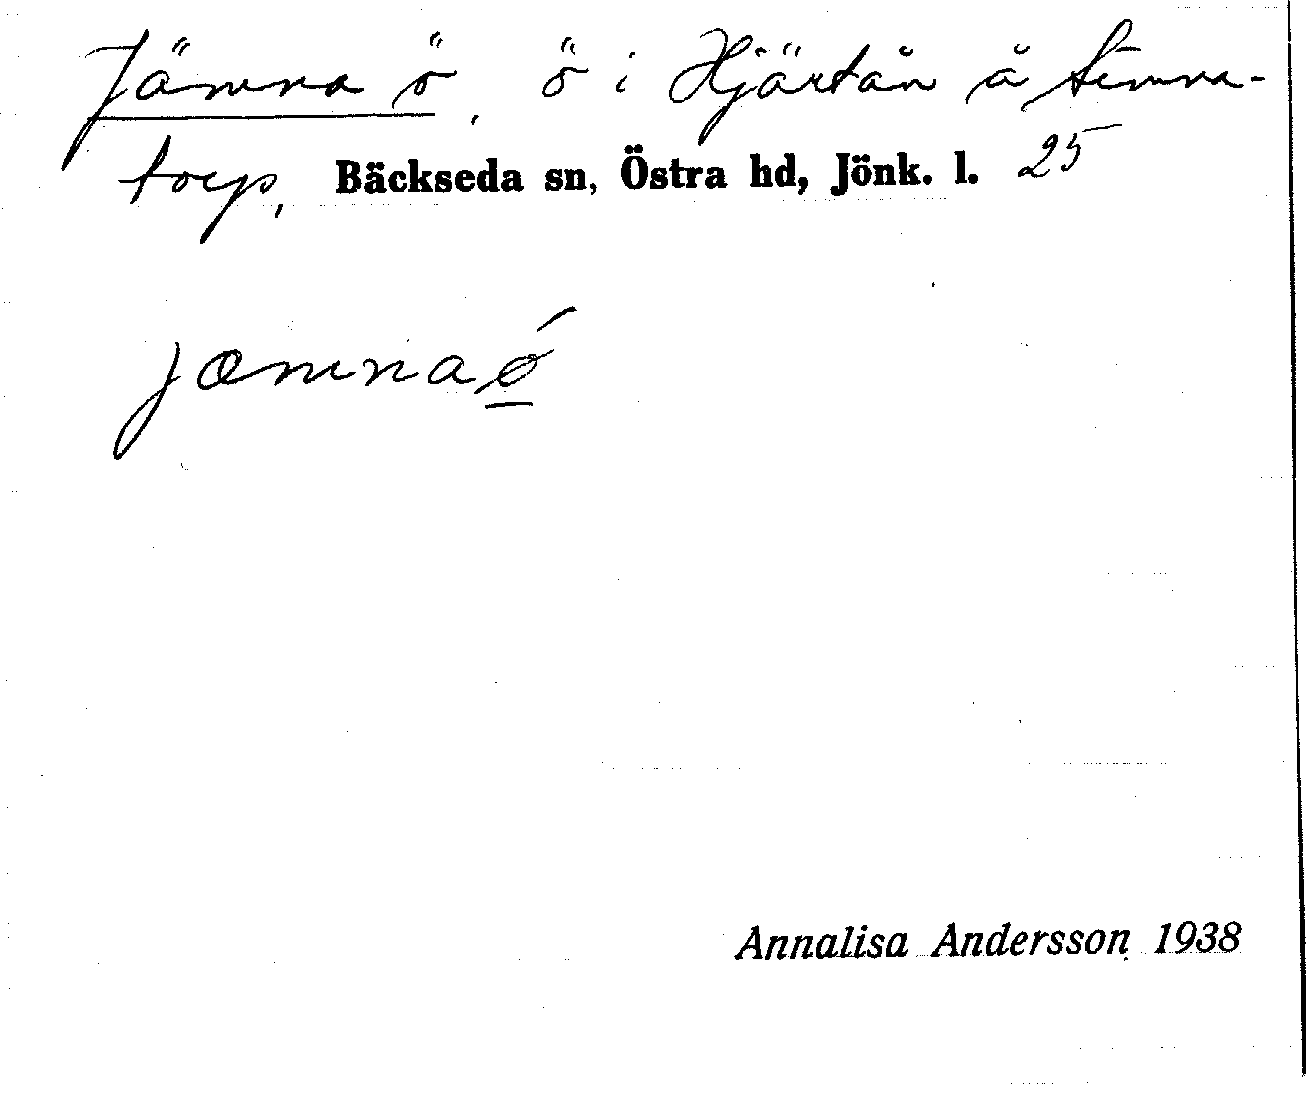 Jämna ö, ö i Hjärtån å Simna-
torp, Bäckseda sn, Östra hd, Jönk. l. 25
jæmnaǿ
Annalisa Andersson 1938